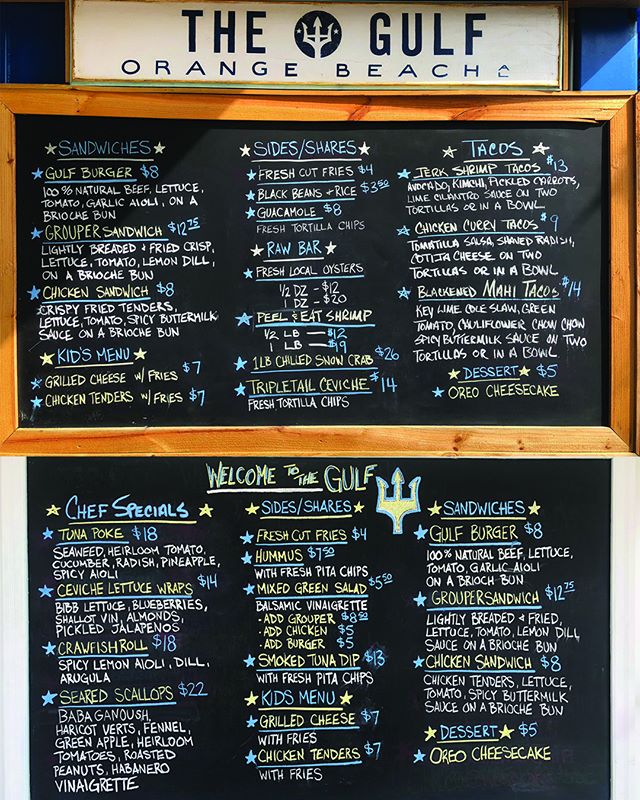 THE GULF
ORANGE BEACH
SANDWICHES
GULF BURGER $8
100% NATURAL BEEF, LETTUCE,
TOMATO, GARLIC AIOLI, ON A
BRIOCHE BUN
GROUPER SANDWICH $12.75
LIGHTLY BREADED & FRIED CRISP,
LETTUCE, TOMATO, LEMON DILL,
ON A BRIOCHE BUN
CHICKEN SANDWICH $8
CRISPY FRIED TENDERS,
LETTUCE, TOMATO, SPICY BUTTERMILK
SAUCE ON A BRIOCHE BUN
KID'S MENU
GRILLED CHEESE W/ FRIES $7
CHICKEN TENDERS W/ FRIES $7
SIDES/SHARES
FRESH CUT FRIES $4
BLACK BEANS + RICE $3.50
GUACAMOLE $8
FRESH TORTILLA CHIPS
RAW BAR
FRESH LOCAL OYSTERS
1/2 DZ - $12
1 DZ - $20
PEEL & EAT SHRIMP
1/2 LB - $12
1 LB - $19
1LB CHILLED SNOW CRAB $26
TRIPLETAIL CEVICHE $14
FRESH TORTILLA CHIPS
TACOS
JERK SHRIMP TACOS $13
AVOCADO, KIMCHI, PICKLED CARROTS,
LIME CILANTRO SAUCE ON TWO
TORTILLAS OR IN A BOWL
CHICKEN CURRY TACOS $9
TOMATILLA SALSA, SHAVED RADISH,
COTIJA CHEESE ON TWO
TORTILLAS OR IN A BOWL
BLACKENED MAHI TACOS $14
KEY LIME COLE SLAW, GREEN
TOMATO, CAULIFLOWER CHOW CHOW
SPICY BUTTERMILK SAUCE ON TWO
TORTILLAS OR IN A BOWL
DESSERT $5
OREO CHEESECAKE
WELCOME TO THE GULF
CHEF SPECIALS
TUNA POKE $18
SEAWEED, HEIRLOOM TOMATO,
CUCUMBER, RADISH, PINEAPPLE,
SPICY AIOLI
CEVICHE LETTUCE WRAPS $14
BIBB LETTUCE, BLUEBERRIES,
SHALLOT VIN, ALMONDS,
PICKLED JALAPENOS
CRAWFISH ROLL $18
SPICY LEMON AIOLI, DILL,
ARUGULA
SEARED SCALLOPS $22
BABA GANOUSH,
HARICOT VERTS, FENNEL,
GREEN APPLE, HEIRLOOM
TOMATOES, ROASTED
PEANUTS, HABANERO
VINAIGRETTE
SIDES/SHARES
FRESH CUT FRIES $4
HUMMUS $7.50
WITH FRESH PITA CHIPS
MIXED GREEN SALAD $5.50
BALSAMIC VINAIGRETTE
-ADD GROUPER $8.50
-ADD CHICKEN $5
-ADD BURGER $5
SMOKED TUNA DIP $13
WITH FRESH PITA CHIPS
KIDS MENU
GRILLED CHEESE $7
WITH FRIES
CHICKEN TENDERS $7
WITH FRIES
SANDWICHES
GULF BURGER $8
100% NATURAL BEEF, LETTUCE,
TOMATO, GARLIC AIOLI
ON A BRIOCH BUN
GROUPER SANDWICH $12.75
LIGHTLY BREADED & FRIED,
LETTUCE, TOMATO, LEMON DILL
SAUCE ON A BRIOCHE BUN
CHICKEN SANDWICH $8
CHICKEN TENDERS, LETTUCE,
TOMATO, SPICY BUTTERMILK
SAUCE ON A BRIOCHE BUN
DESSERT $5
OREO CHEESECAKE